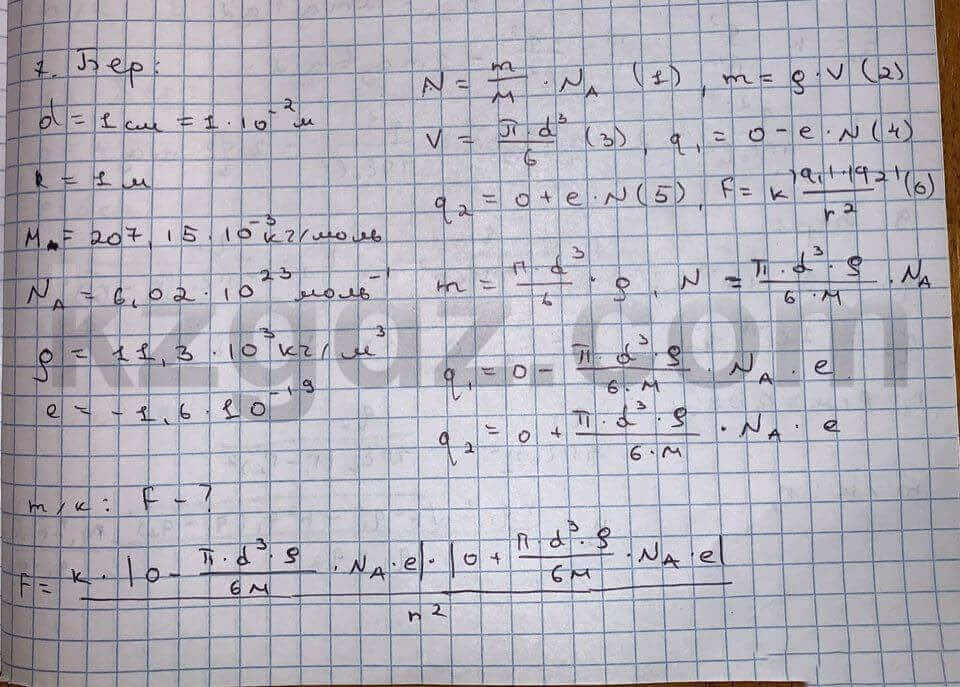 7. Бер:
d = 1 см = 1 · 10⁻² м
r = 1 м
Mₐ = 207,15 · 10⁻³ кг/моль
N_A = 6,02 · 10²³ моль⁻¹
ρ = 11,3 · 10³ кг/м³
e = -1,6 · 10⁻¹⁹
т/к: F - ?
N = m/M · N_A (1), m = ρ · V (2)
V = π · d³/6 (3), q₁ = 0 - e · N (4)
q₂ = 0 + e · N (5), F = k |q₁| · |q₂|/r² (6)
m = π · d³/6 · ρ, N = π · d³ · ρ/6 · M · N_A
q₁ = 0 - π · d³ · ρ/6 · M · N_A · e
q₂ = 0 + π · d³ · ρ/6 · M · N_A · e
F = k · |0 - π · d³ · ρ/6M · N_A · e| · |0 + π · d³ · ρ/6M · N_A · e|/r²
kzgdz.com